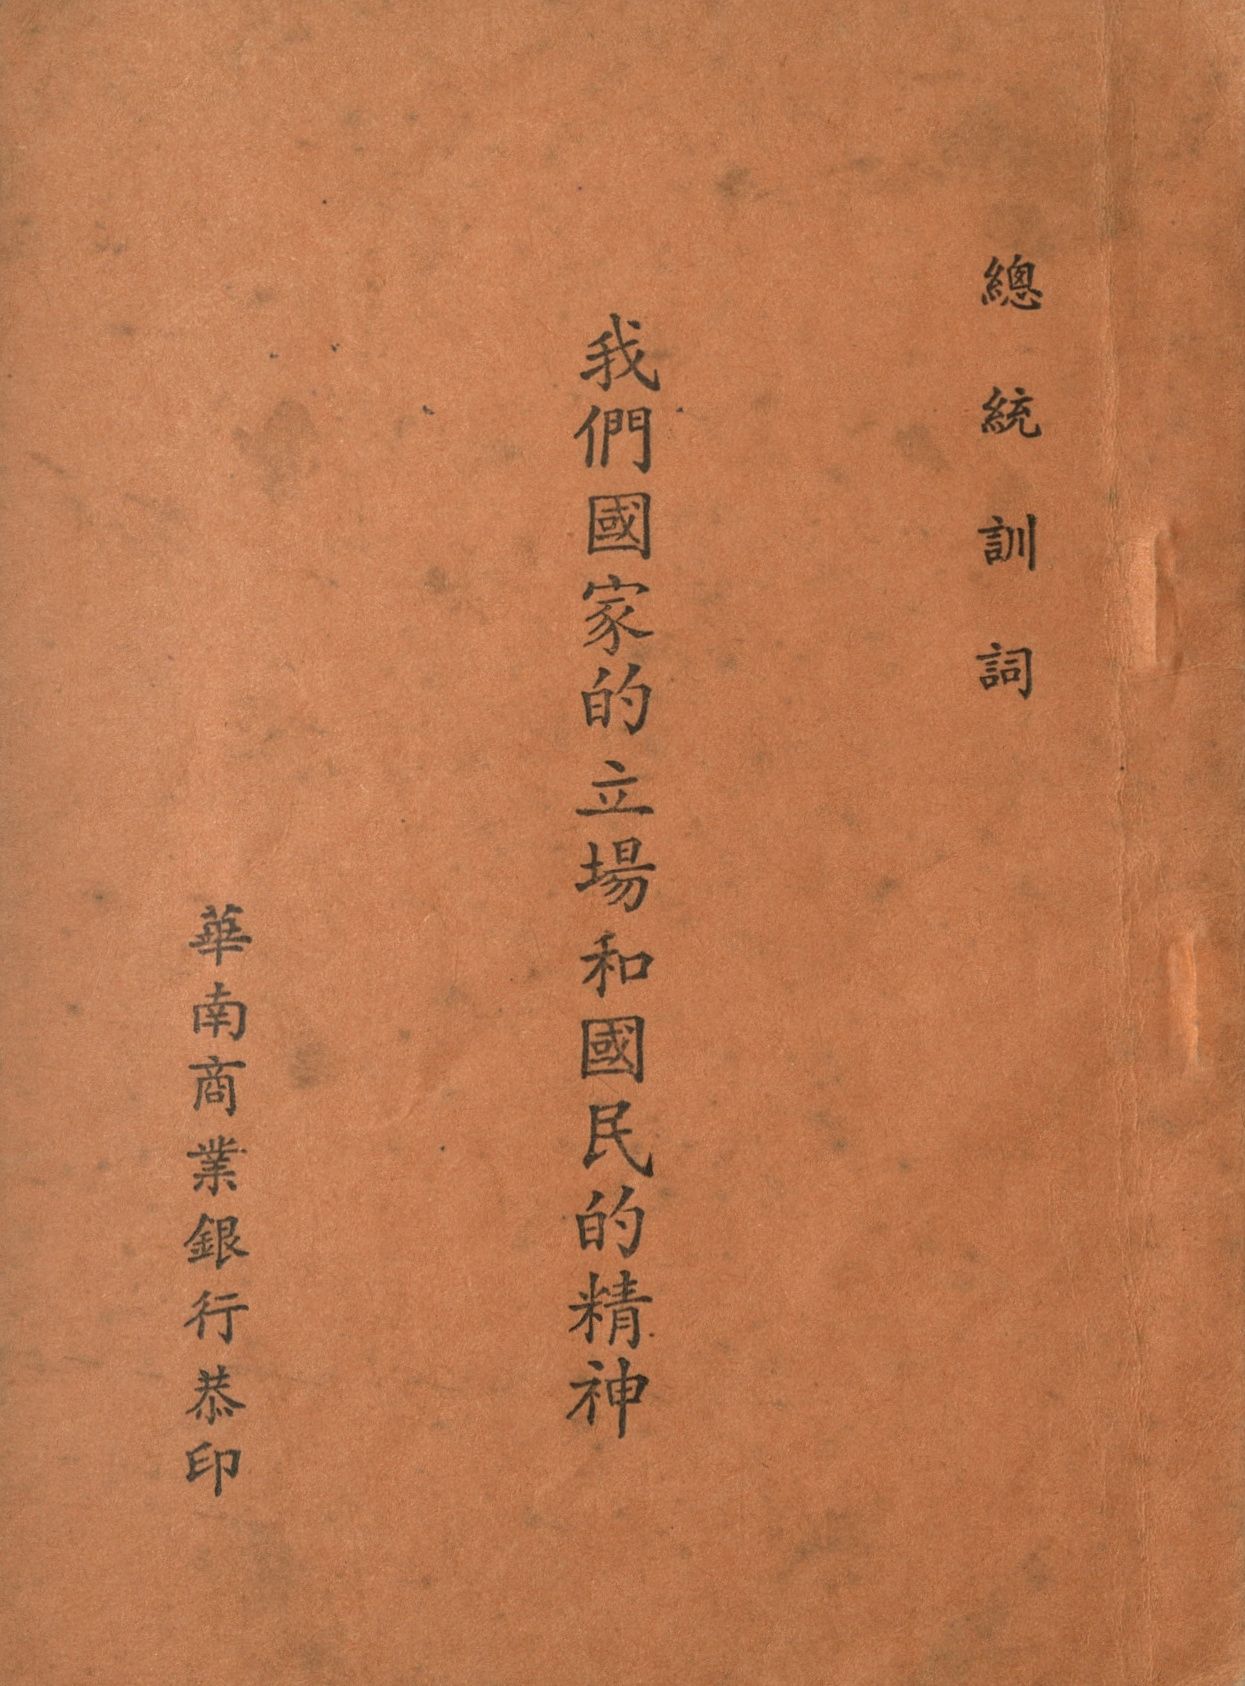 總統訓詞
我們國家的立場和國民的精神
華南商業銀行恭印